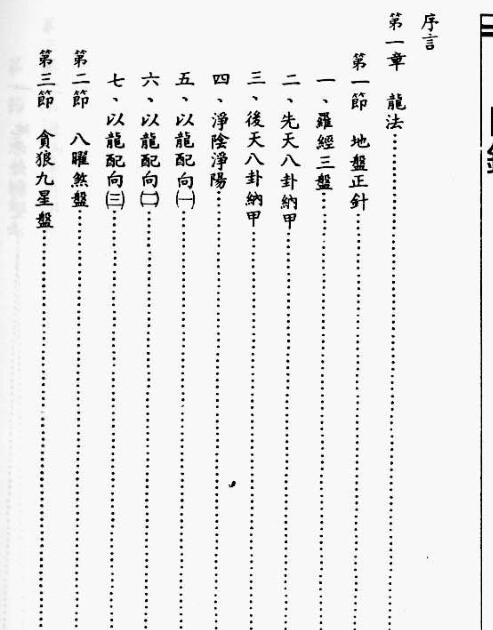 序言
第一章 龍法
第一節 地盤正針
一、羅經三盤
二、先天八卦納甲
三、後天八卦納甲
四、淨陰淨陽
五、以龍配向㈠
六、以龍配向㈡
七、以龍配向㈢
第二節 八曜煞盤
第三節 貪狼九星盤